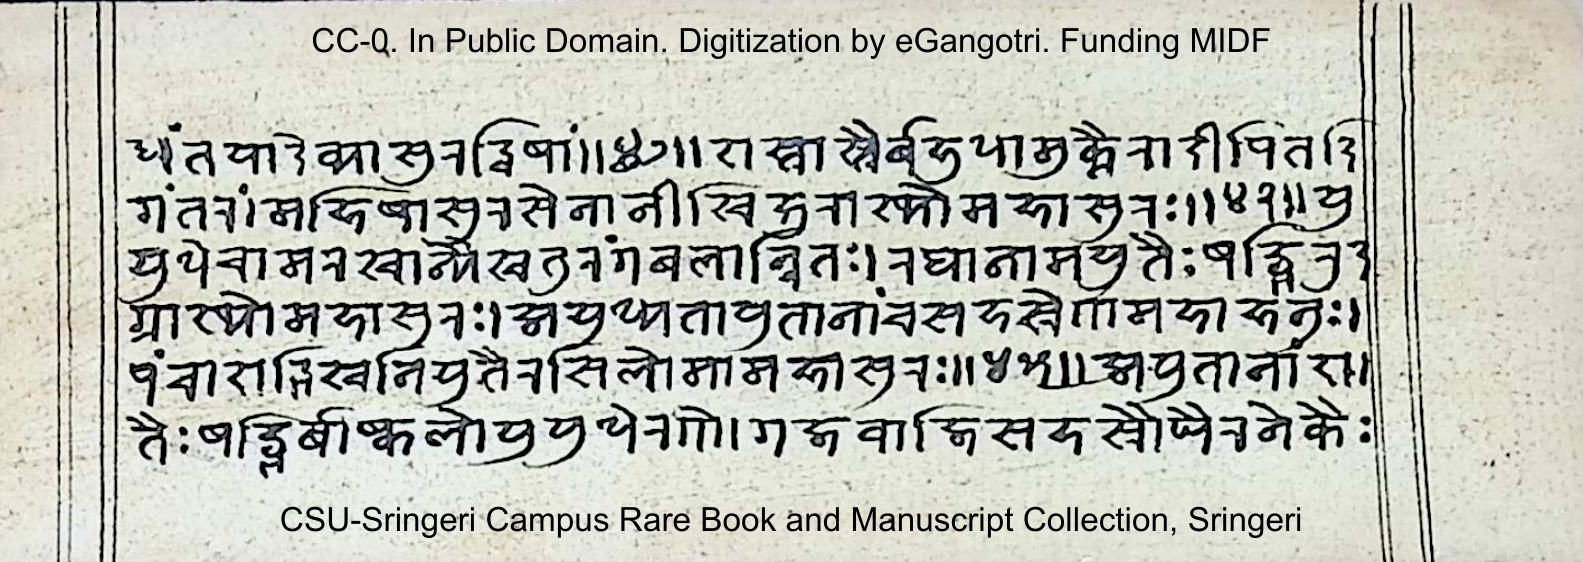 CC-0. In Public Domain. Digitization by eGangotri. Funding MIDF
धं तयादेव्यासुरद्विषां॥४०॥शस्त्रास्त्रैर्बहुधामुक्तैरादीपितदि
गंतरां।महिषासुरसेनानीश्चिक्षुराख्योमहासुरः॥४१॥यु
युधेचामरश्चान्यैश्चतुरंगबलान्वितः।रथानामयुतैःषड्भिरुद
ग्राख्योमहासुरः।अयुध्यतायुतानांचसहस्रेणमहाहनुः।
पंचाशद्भिश्चनियुतैरसिलोमामहासुरः॥४५॥अयुतानांश
तैःषड्भिर्बाष्कलोयुयुधेरणे।गजवाजिसहस्रौघैरनेकैः
CSU-Sringeri Campus Rare Book and Manuscript Collection, Sringeri